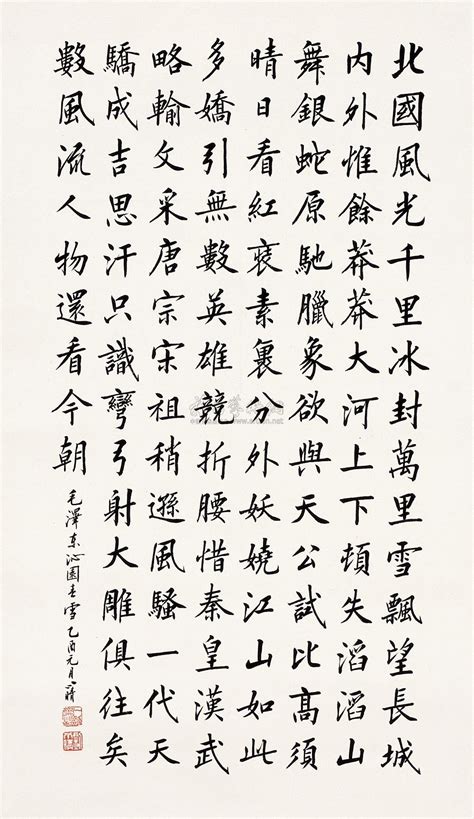 北國風光千里冰封萬里雪飄望長城
内外惟餘莽莽大河上下頓失滔滔山
舞銀蛇原馳臘象欲與天公試比高須
晴日看紅裝素裹分外妖嬈江山如此
多嬌引無數英雄競折腰惜秦皇漢武
略輸文采唐宗宋祖稍遜風騷一代天
驕成吉思汗只識彎弓射大雕俱往矣
數風流人物還看今朝
毛澤东沁園春雪乙酉元月